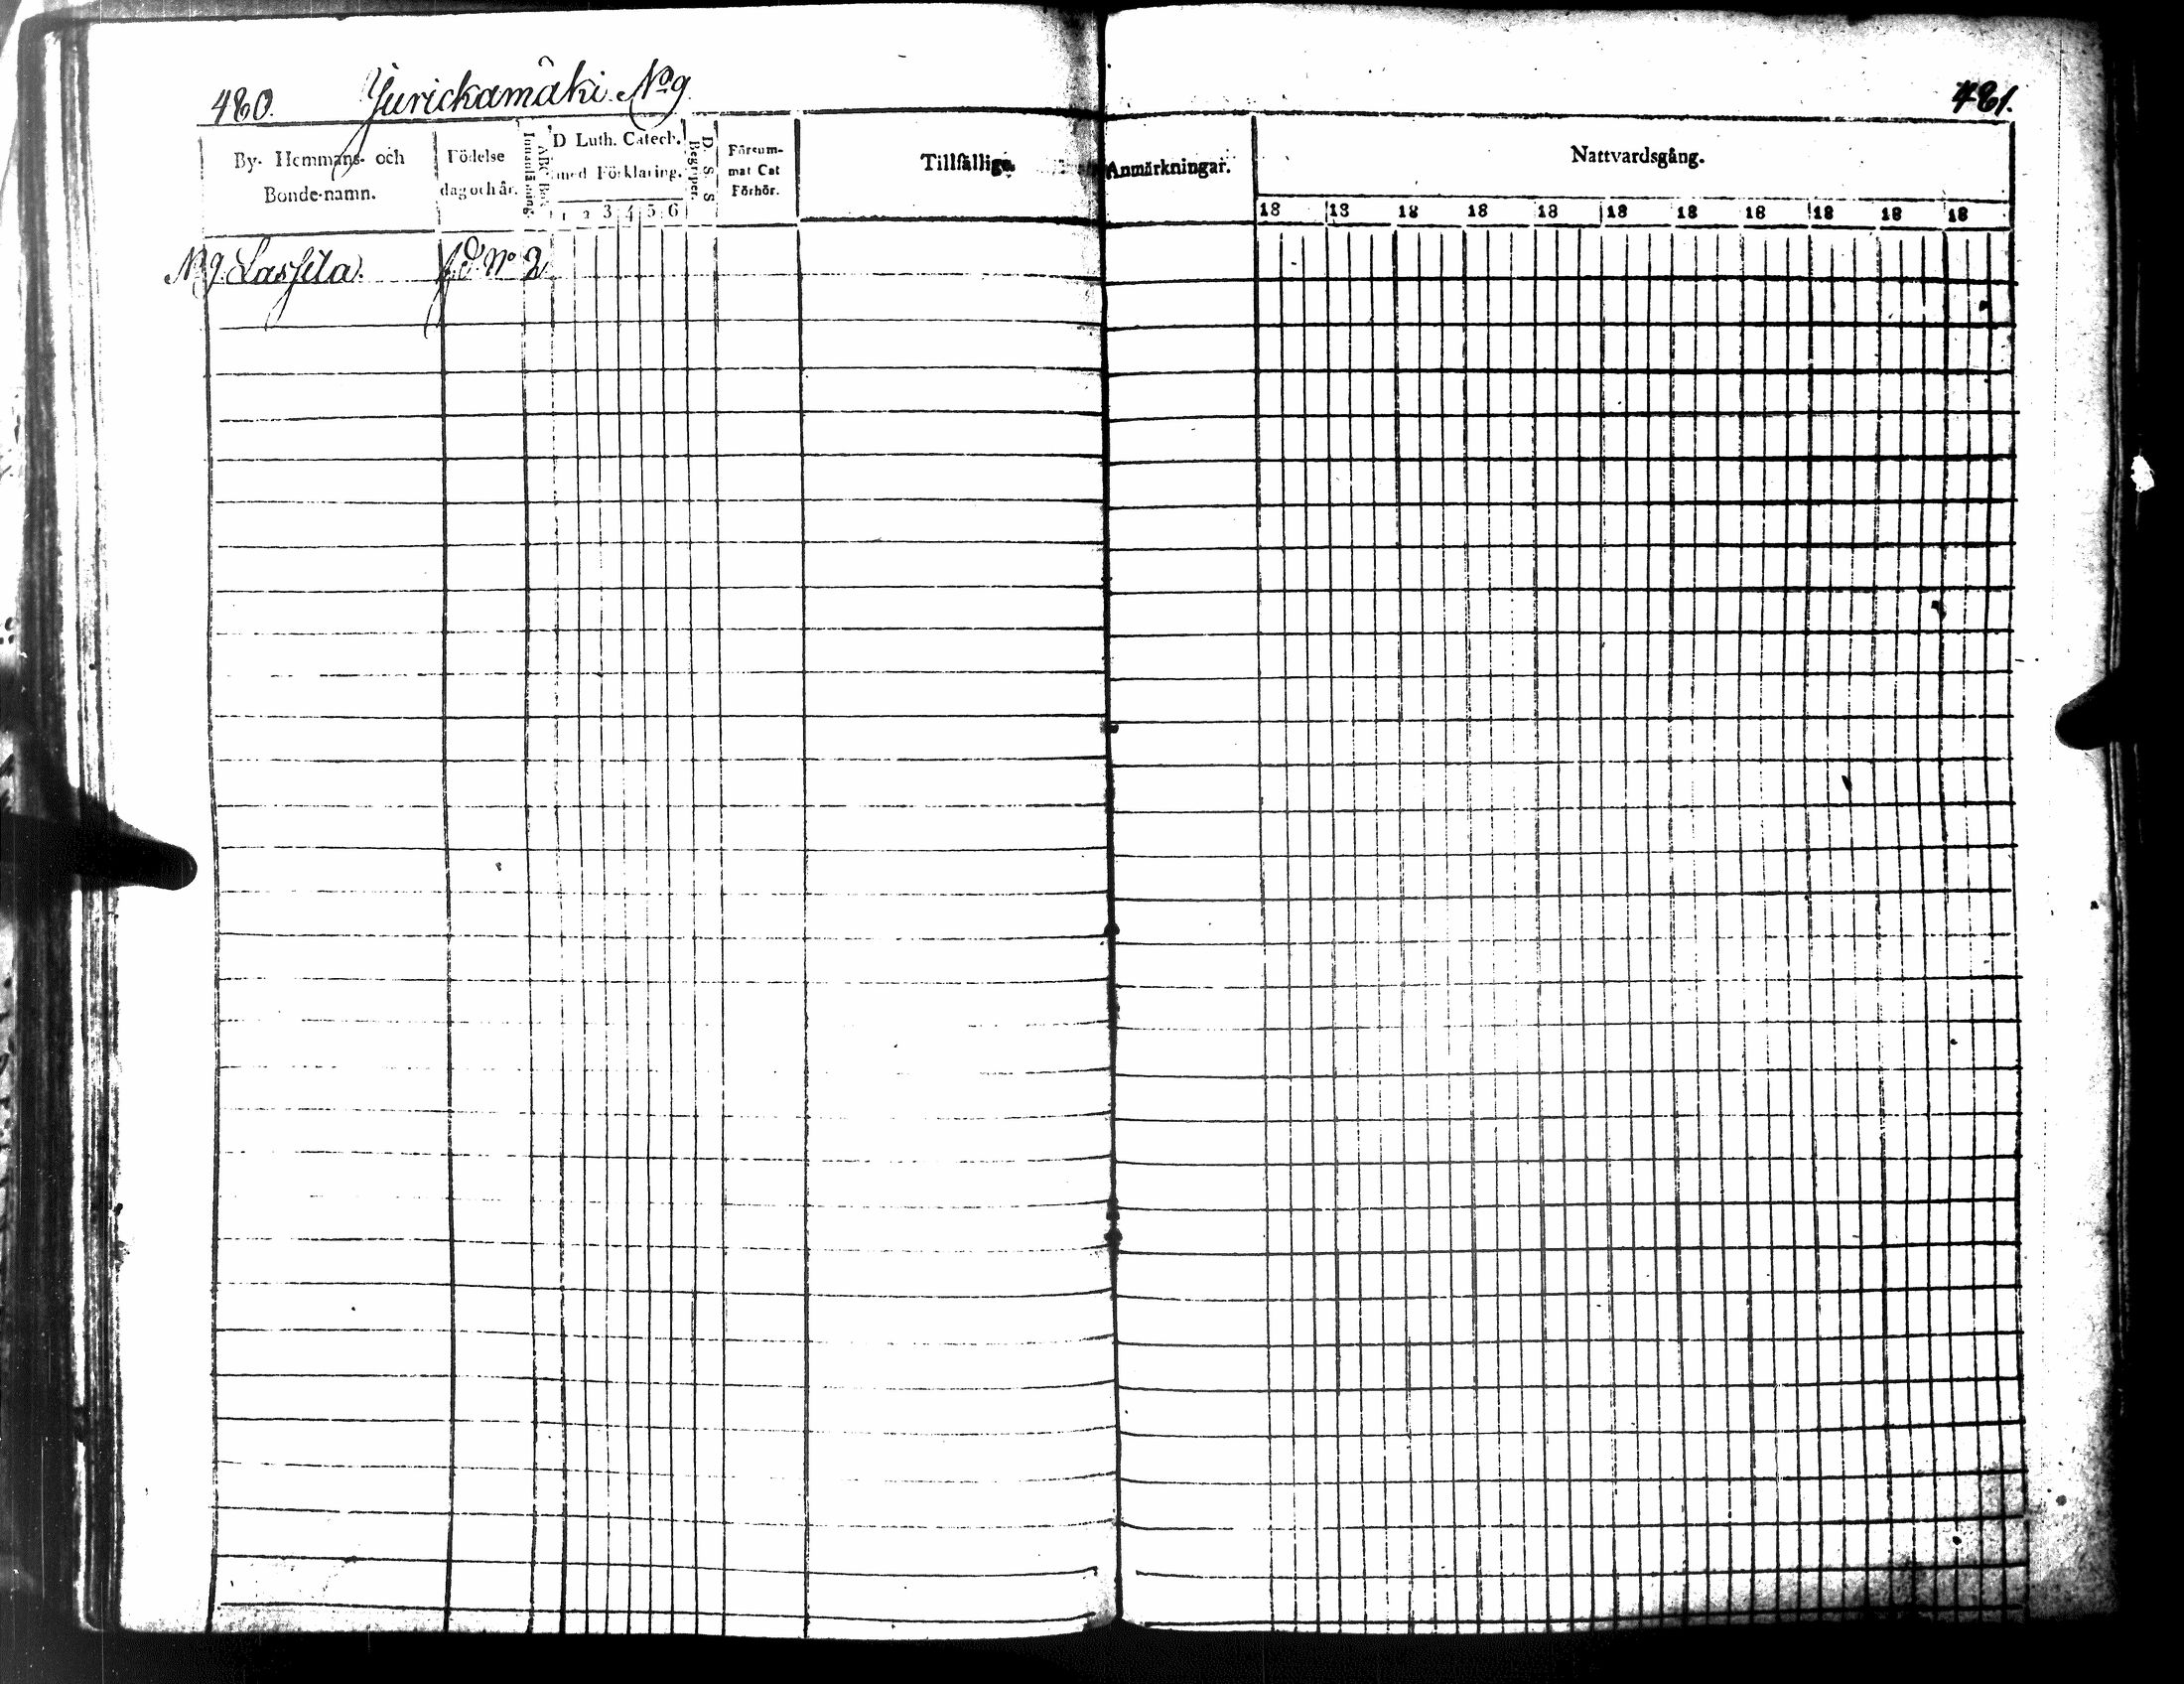 480. Jurickamäki No 9 481.
By- Hemmans- och Bonde-namn. Födelse dag och år. Innanläsning. ABC Bok D Luth. Catech. med Förklaring. 1 2 3 4 5 6 D. S. S. Begreper. Försum- mat Cat Förhör. Tillfällige Anmärkningar. Nattvardsgång.
18 18 18 18 18 18 18 18 18 18 18
N 9 Lassila. No 2